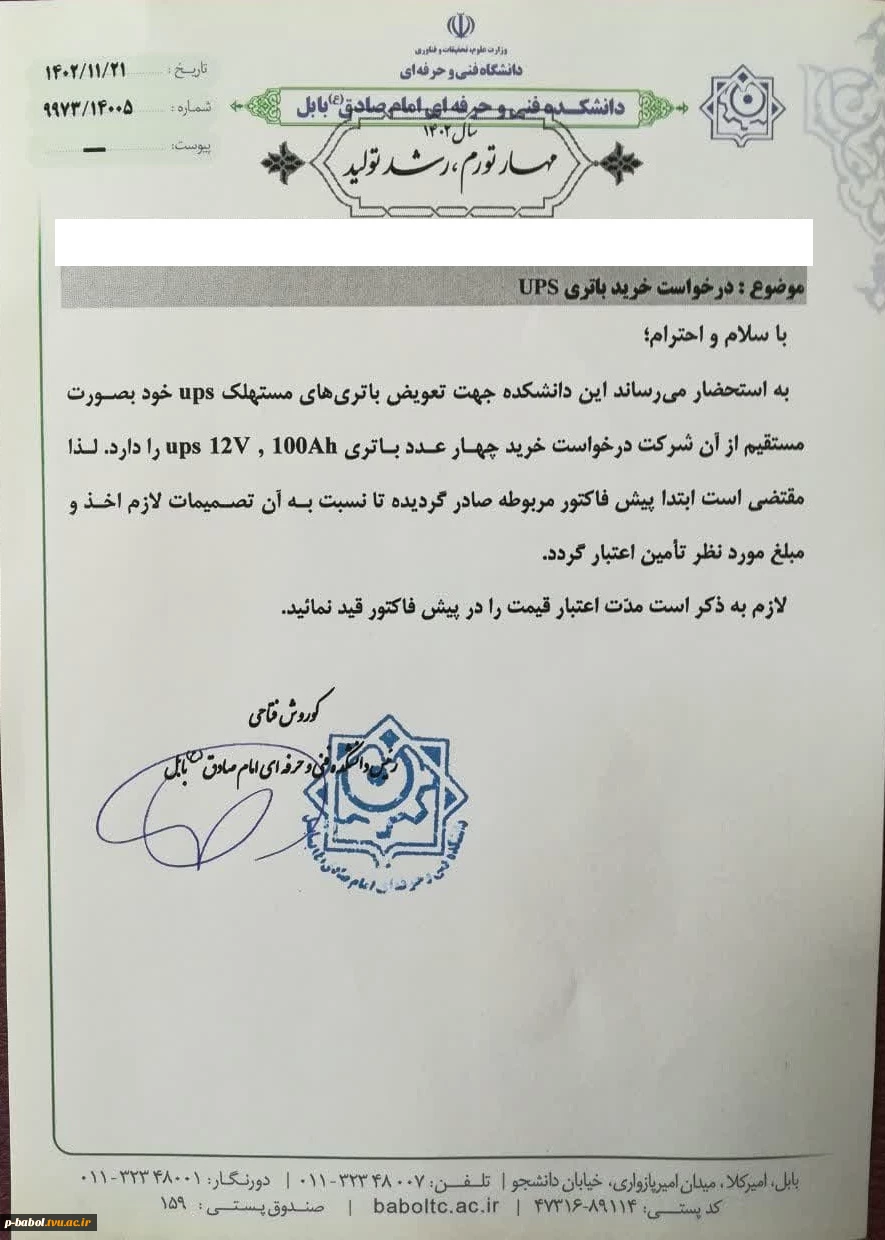 وزارت علوم، تحقیقات و فناوری
دانشگاه فنی و حرفه ای
دانشکده فنی و حرفه ای امام صادق (ع) بابل
سال ۱۴۰۲
مهار تورم، رشد تولید
تاریخ: ۱۴۰۲/۱۱/۲۱
شماره: ۹۹۷۳/۱۴۰۰۵
پیوست: ــ
موضوع : درخواست خرید باتری UPS
با سلام و احترام؛
به استحضار می‌رساند این دانشکده جهت تعویض باتری‌های مستهلک ups خود بصورت
مستقیم از آن شرکت درخواست خرید چهار عدد باتری ups 12V , 100Ah را دارد. لذا
مقتضی است ابتدا پیش فاکتور مربوطه صادر گردیده تا نسبت به آن تصمیمات لازم اخذ و
مبلغ مورد نظر تأمین اعتبار گردد.
لازم به ذکر است مدّت اعتبار قیمت را در پیش فاکتور قید نمائید.
کوروش فتاحی
رئیس دانشکده فنی و حرفه ای امام صادق (ع) بابل
دانشکده فنی و حرفه ای امام صادق (ع) بابل
بابل، امیرکلا، میدان امیرپازواری، خیابان دانشجو | تلفن: ۰۱۱-۳۲۳۴۸۰۰۷ | دورنگار: ۰۱۱-۳۲۳۴۸۰۰۱
کد پستی: ۴۷۳۱۶-۸۹۱۱۴ | baboltc.ac.ir | صندوق پستی: ۱۵۹
p-babol.tvu.ac.ir